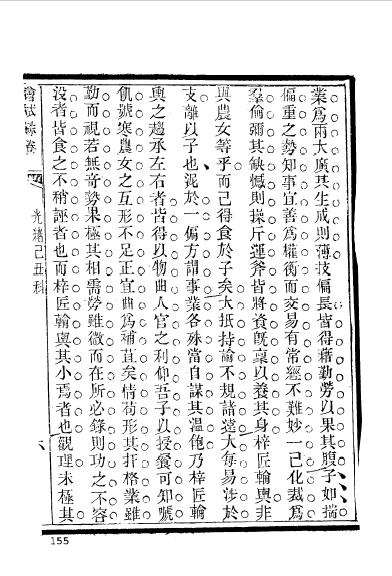 業爲兩大廣其生成則薄技偏長皆得藉勤勞以果其腹子如揣
偏重之勢知事宜善爲權衡而交易有常經不難妙一己化裁爲
羣倫彌其缺憾則操斤運斧皆將資旣稟以養其身梓匠輪輿非
與農女等乎而己得食於子矣大抵持論不規諸遠大每易涉於
支離以子也泥於一偏方謂事業各殊當自謀其溫飽乃梓匠輪
輿之趨承左右者皆得以物曲人官之利仰吾子以授餐可知號
飢號寒農女之互形不足正宜曲爲補苴矣情苟形其扞格業雖
勤而視若無奇勢果極其相需勞雖微而在所必錄則功之不容
沒者皆食之不稍誣者也而梓匠輪輿其小焉者也觀理未極其
會試錄卷
光緒己丑科
六
155